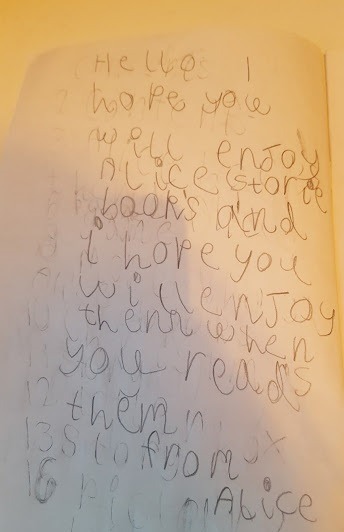 Hello I
hope you
will enjoy
Alice storie
books and
i hope you
will enjoy
them when
you reads
them
from x
Alice
12
13
16